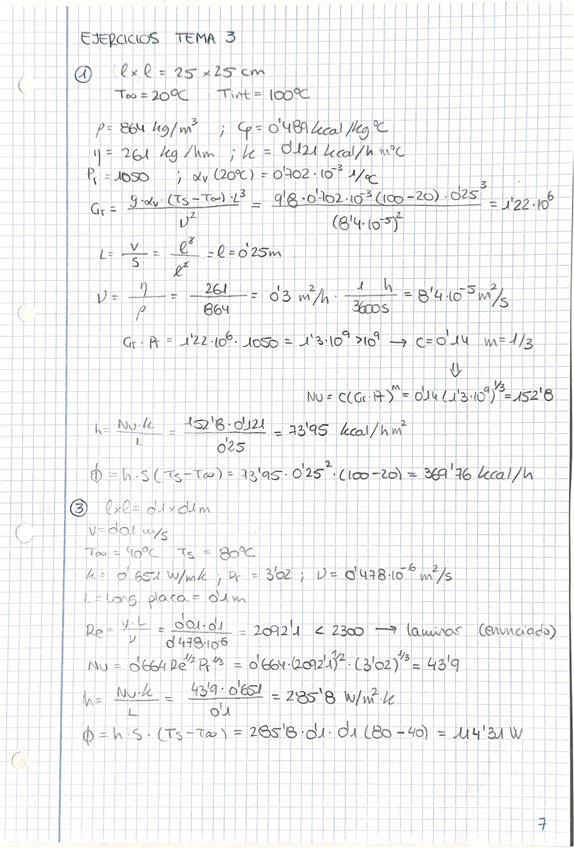 EJERCICIOS TEMA 3
① l x l = 25 x 25 cm
T∞ = 20ºC Tint = 100ºC
ρ = 864 kg/m³ ; Cp = 0'489 kcal/kgºC
η = 261 kg/hm ; k = 0'121 kcal/h mºC
Pr = 1050 ; αv (20ºC) = 0'702·10⁻³ 1/ºC
Gr = g·αv·(Ts-T∞)·L³ / ν² = 9'8·0'702·10⁻³(100-20)·0'25³ / (8'4·10⁻⁵)² = 1'22·10⁶
L = V/S = l³/l² = l = 0'25m
ν = η/ρ = 261/864 = 0'3 m²/h · 1 h/3600s = 8'4·10⁻⁵ m²/s
Gr·Pr = 1'22·10⁶·1050 = 1'3·10⁹ > 10⁹ → C = 0'14 m = 1/3
⇓
Nu = C(Gr·Pr)ᵐ = 0'14 (1'3·10⁹)^1/3 = 152'8
h = Nu·k/L = 152'8·0'121/0'25 = 73'95 kcal/hm²
ϕ = h·S(Ts-T∞) = 73'95·0'25²·(100-20) = 369'76 kcal/h
③ l x l = 0'1 x 0'1m
V = 0'01 m/s
T∞ = 40ºC Ts = 80ºC
k = 0'651 W/mk , Pr = 3'02 ; ν = 0'478·10⁻⁶ m²/s
L = long placa = 0'1m
Re = V·L/ν = 0'01·0'1/0'478·10⁻⁶ = 2092'1 < 2300 → laminar (enunciado)
Nu = 0'664 Re^1/2 Pr^1/3 = 0'664·(2092'1)^1/2·(3'02)^1/3 = 43'9
h = Nu·k/L = 43'9·0'651/0'1 = 285'8 W/m²·k
ϕ = h·S·(Ts-T∞) = 285'8·0'1·0'1(80-40) = 114'31 W
7